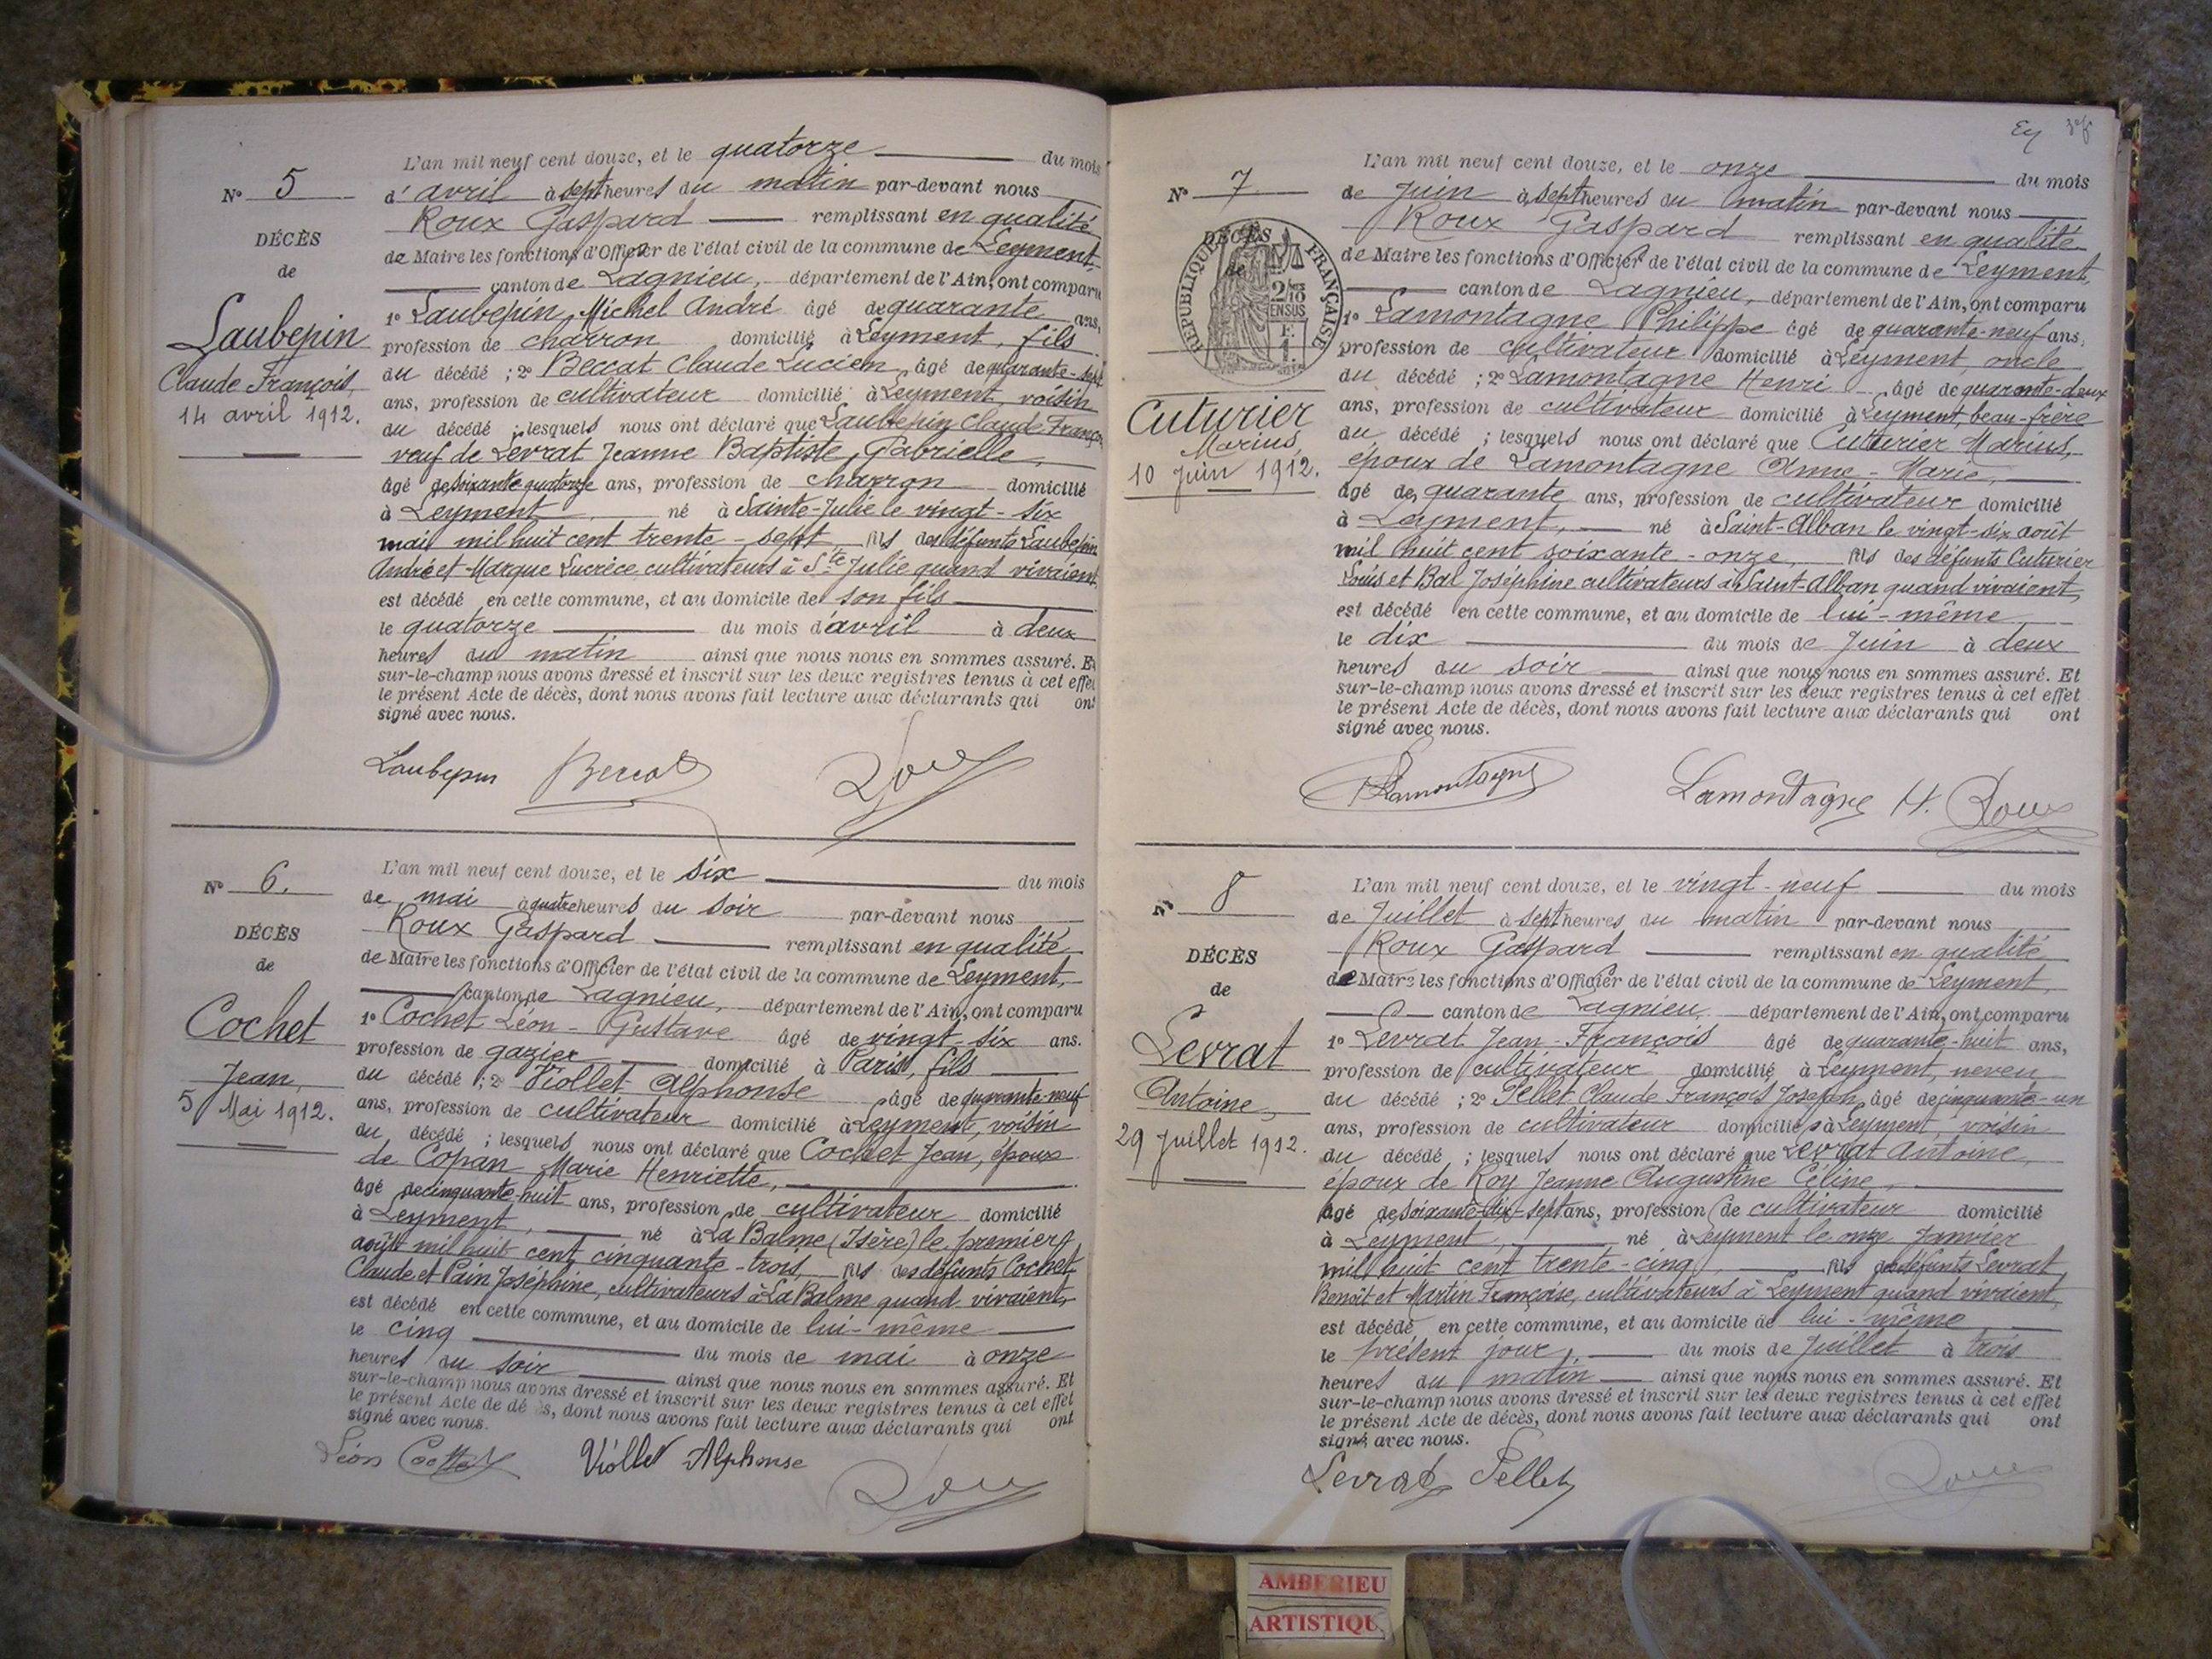 N° 5
DÉCÈS
de
Laubepin
Claude François,
14 avril 1912.
L'an mil neuf cent douze, et le quatorze du mois
d'avril à sept heures du matin par-devant nous
Roux Gaspard remplissant en qualité
de Maire les fonctions d'Officier de l'état civil de la commune de Leyment,
canton de Lagnieu, département de l'Ain, ont comparu
1° Laubepin, Michel André âgé de quarante ans,
profession de charron domicilié à Leyment, fils
du décédé ; 2° Beccat Claude Lucien âgé de quarante-sept
ans, profession de cultivateur domicilié à Leyment, voisin
du décédé ; lesquels nous ont déclaré que Laubepin Claude François
veuf de Levrat Jeanne Baptiste, Gabrielle,
âgé de soixante-quatorze ans, profession de charron domicilié
à Leyment né à Sainte-Julie le vingt-six
mai mil huit cent trente-sept fils des défunts Laubepin
André et Marque Lucrèce cultivateurs à Ste Julie quand vivaient,
est décédé en cette commune, et au domicile de son fils
le quatorze du mois d'avril à deux
heures du matin ainsi que nous nous en sommes assuré. Et
sur-le-champ nous avons dressé et inscrit sur les deux registres tenus à cet effet
le présent Acte de décès, dont nous avons fait lecture aux déclarants qui ont
signé avec nous.
Laubepin Beccat Roux
N° 6.
DÉCÈS
de
Cochet
Jean,
5 Mai 1912.
L'an mil neuf cent douze, et le six du mois
de mai à quatre heures du soir par-devant nous
Roux Gaspard remplissant en qualité
de Maire les fonctions d'Officier de l'état civil de la commune de Leyment,
canton de Lagnieu, département de l'Ain, ont comparu
1° Cochet Léon-Gustave âgé de vingt-six ans.
profession de gazier domicilié à Paris, fils
du décédé ; 2° Viollet Alphonse âgé de quarante-neuf
ans, profession de cultivateur domicilié à Leyment, voisin
du décédé ; lesquels nous ont déclaré que Cochet Jean, époux
de Copan Marie Henriette,
âgé de cinquante-huit ans, profession de cultivateur domicilié
à Leyment, né à La Balme (Isère) le premier
août mil huit cent cinquante-trois, fils des défunts Cochet
Claude et Pain Joséphine, cultivateurs à La Balme quand vivaient,
est décédé en cette commune, et au domicile de lui-même
le cinq du mois de mai à onze
heures du soir ainsi que nous nous en sommes assuré. Et
sur-le-champ nous avons dressé et inscrit sur les deux registres tenus à cet effet
le présent Acte de décès, dont nous avons fait lecture aux déclarants qui ont
signé avec nous.
Léon Viollet Alphonse Roux
N° 7
DÉCÈS
de
RÉPUBLIQUE FRANÇAISE
2/10
EN SUS
Cuturier
Marius,
10 Juin 1912.
L'an mil neuf cent douze, et le onze du mois
de Juin à sept heures du matin par-devant nous
Roux Gaspard remplissant en qualité
de Maire les fonctions d'Officier de l'état civil de la commune de Leyment,
canton de Lagnieu, département de l'Ain, ont comparu
1° Lamontagne Philippe âgé de quarante-neuf ans,
profession de cultivateur domicilié à Leyment, oncle
du décédé ; 2° Lamontagne Henri âgé de quarante-deux
ans, profession de cultivateur domicilié à Leyment, beau-frère
du décédé ; lesquels nous ont déclaré que Cuturier Marius,
époux de Lamontagne Anne-Marie,
âgé de quarante ans, profession de cultivateur domicilié
à Leyment, né à Saint-Alban le vingt-six août
mil huit cent soixante-onze, fils des défunts Cuturier
Louis et Bal Joséphine cultivateurs à Saint-Alban quand vivaient,
est décédé en cette commune, et au domicile de lui-même
le dix du mois de Juin à deux
heures du soir ainsi que nous nous en sommes assuré. Et
sur-le-champ nous avons dressé et inscrit sur les deux registres tenus à cet effet
le présent Acte de décès, dont nous avons fait lecture aux déclarants qui ont
signé avec nous.
Lamontagne Lamontagne H. Roux
N° 8
DÉCÈS
de
Levrat
Antoine,
29 Juillet 1912.
L'an mil neuf cent douze, et le vingt-neuf du mois
de Juillet à sept heures du matin par-devant nous
Roux Gaspard remplissant en qualité
de Maire les fonctions d'Officier de l'état civil de la commune de Leyment,
canton de Lagnieu, département de l'Ain, ont comparu
1° Levrat Jean-François âgé de quarante-huit ans,
profession de cultivateur domicilié à Leyment, neveu
du décédé ; 2° Pellet Claude François Joseph, âgé de cinquante-un
ans, profession de cultivateur domicilié à Leyment, voisin
du décédé ; lesquels nous ont déclaré que Levrat Antoine,
époux de Roy Jeanne Augustine Céline,
âgé de soixante-dix-sept ans, profession de cultivateur domicilié
à Leyment, né à Leyment le onze Janvier
mil huit cent trente-cinq, fils des défunts Levrat
Benoît et Martin Françoise, cultivateurs à Leyment quand vivaient,
est décédé en cette commune, et au domicile de lui-même
le présent jour, du mois de Juillet à trois
heures du matin ainsi que nous nous en sommes assuré. Et
sur-le-champ nous avons dressé et inscrit sur les deux registres tenus à cet effet
le présent Acte de décès, dont nous avons fait lecture aux déclarants qui ont
signé avec nous.
Levrat Pellet Roux
AMBERIEU
ARTISTIQU